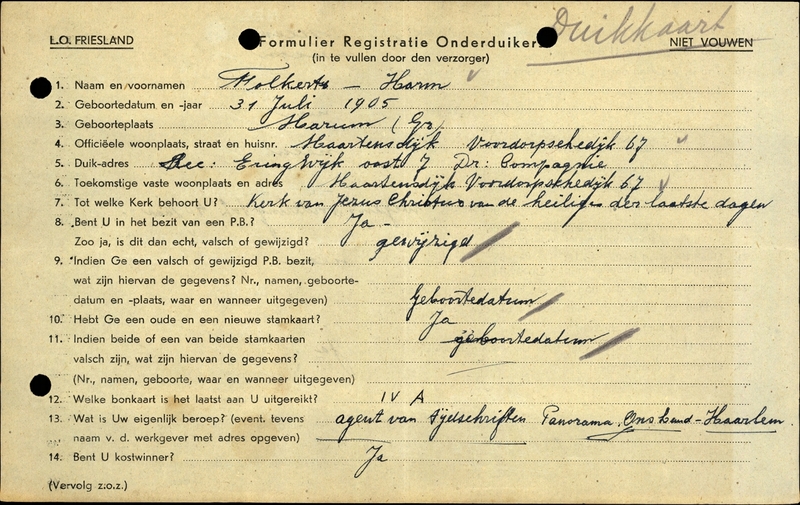 Duikkaart
L.O. FRIESLAND
Formulier Registratie Onderduikers
NIET VOUWEN
(in te vullen door den verzorger)
1. Naam en voornamen Folkerts - Harm
2. Geboortedatum en -jaar 31 Juli 1905
3. Geboorteplaats Marum (Gr)
4. Officiëele woonplaats, straat en huisnr. Maartensdijk Voordorpschedijk 67
5. Duik-adres Eringwijk oost 7 Dr: Compagnie
6. Toekomstige vaste woonplaats en adres Maartensdijk Voordorpschedijk 67
7. Tot welke Kerk behoort U? Kerk van Jezus Christus van de heiligen der laatste dagen
8. Bent U in het bezit van een P.B.? Ja -
Zoo ja, is dit dan echt, valsch of gewijzigd? gewijzigd
9. Indien Ge een valsch of gewijzigd P.B. bezit,
wat zijn hiervan de gegevens? Nr., namen, geboorte-
datum en -plaats, waar en wanneer uitgegeven) Geboortedatum
10. Hebt Ge een oude en een nieuwe stamkaart? Ja
11. Indien beide of een van beide stamkaarten geboortedatum
valsch zijn, wat zijn hiervan de gegevens?
(Nr., namen, geboorte, waar en wanneer uitgegeven)
12. Welke bonkaart is het laatst aan U uitgereikt? IV A
13. Wat is Uw eigenlijk beroep? (event. tevens agent van Tijdschriften Panorama. Ons Land - Haarlem
naam v. d. werkgever met adres opgeven)
14. Bent U kostwinner? Ja
(Vervolg z.o.z.)